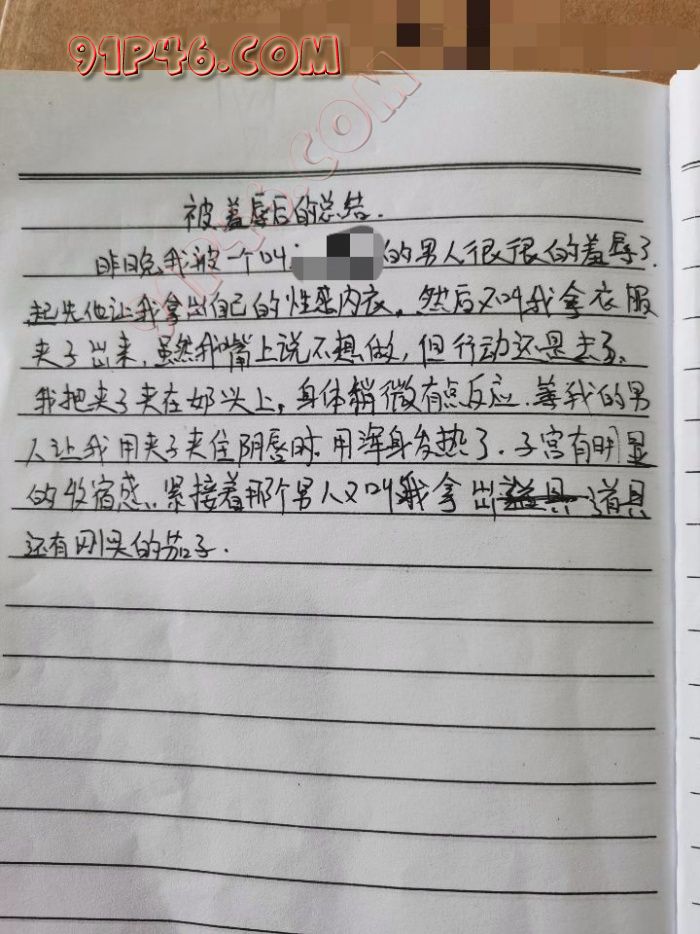 91P46.COM
91P46.COM
被羞辱后的总结.
昨晚我被一个叫 的男人很很的羞辱了.
起先他让我拿出自己的性感内衣,然后又叫我拿衣服
夹子出来,虽然我嘴上说不想做,但行动还是去了.
我把夹子夹在奶头上,身体稍微有点反应.等我的男
人让我用夹子夹住阴唇时.用浑身发热了.子宫有明显
的收宿感.紧接着那个男人又叫我拿出道具
还有刚买的茄子.